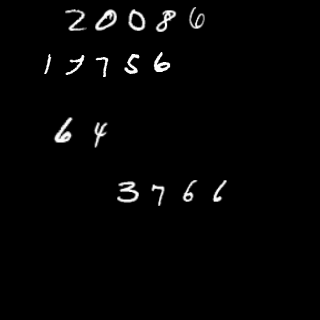 20086
17756
64
3766